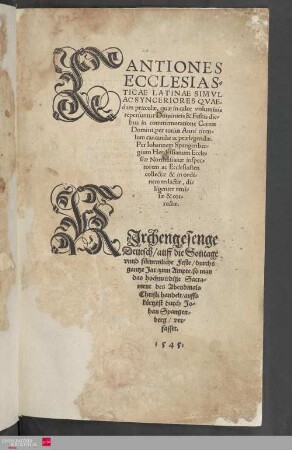 CANTIONES
ECCLESIAS-
TICAE LATINAE SIMVL
AC SYNCERIORES QVAE-
dam præculæ, quæ in calce voluminis
reperiuntur Dominicis & Festis die-
bus in commemoratione Cenæ
Domini, per totius Anni circu-
lum cantandæ ac prælegendæ.
Per Iohannem Spangenber-
gium Herdessianum Eccle-
siæ Northusianæ
ac Ecclesiasten
collectæ & in ordi-
nem redactæ, di-
ligenter emis-
sæ & cor-
rectæ.
KIrchengesenge
Deutsch / auff die Sontage
vnnd fürnemliche Feste / durchs
gantze Jar / zum Ampte, so man
das hochwirdige Sacra-
ment des Abendmals
Christi handelt / auffs
kürtzest durch Jo-
han Spangen-
berg / ver-
fasset.
1545